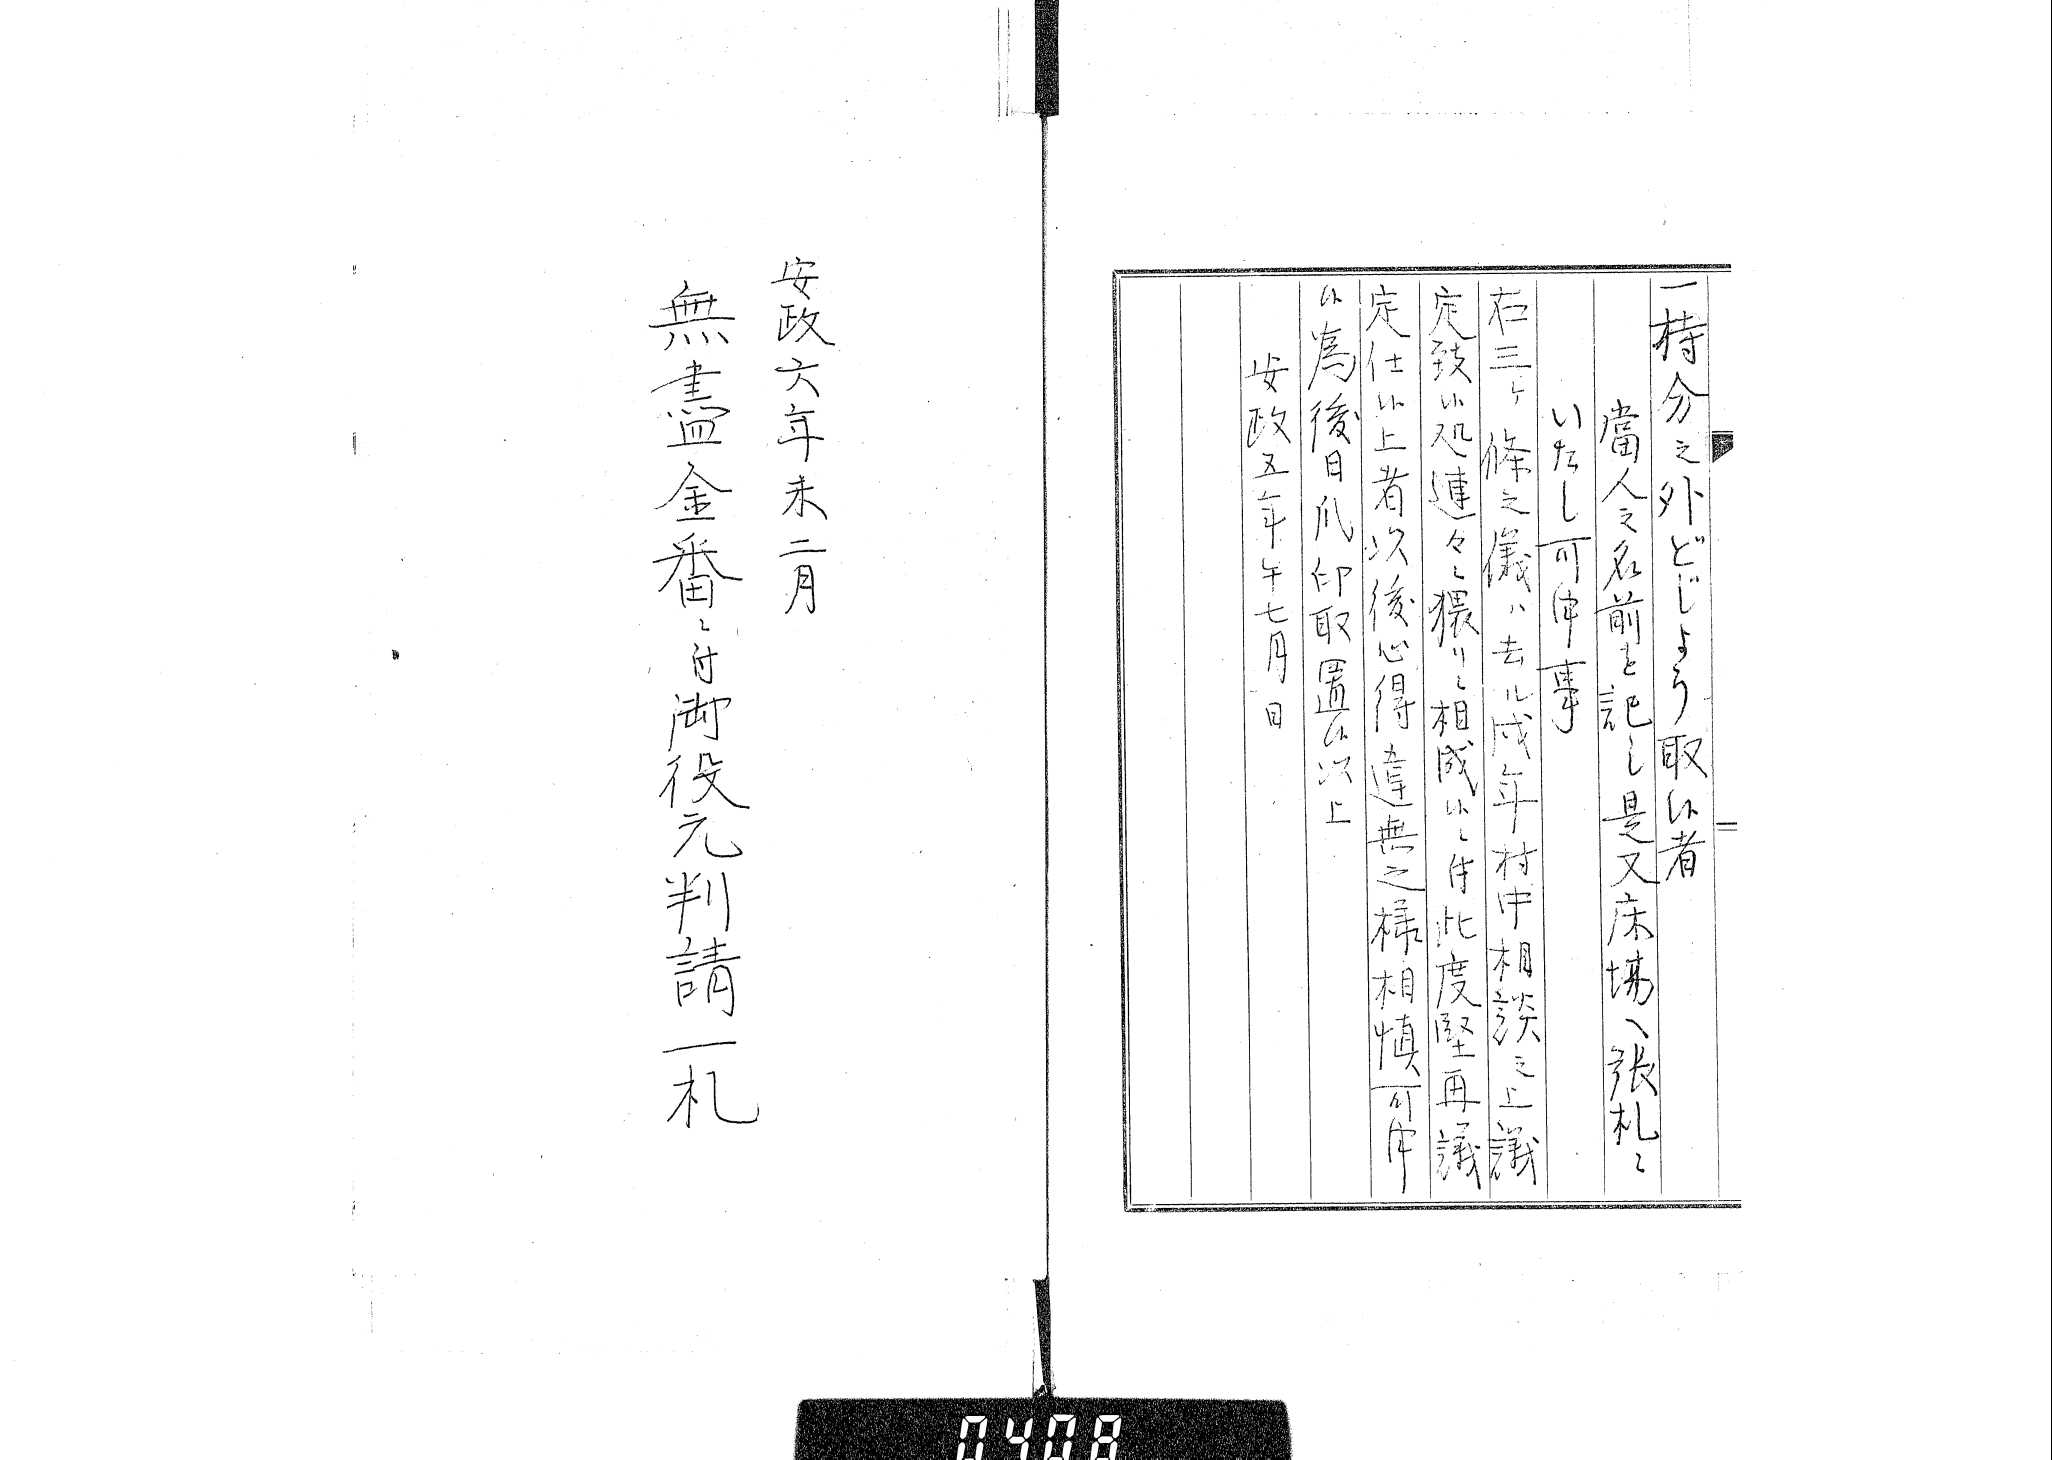 一持分之外どじょう取候者
當人之名前を記し是又床場へ張札ニ
いたし可申事
右三ヶ條之儀ハ去ル戌年村中相談之上議
定致候処連々ニ猥リニ相成候ニ付此度堅再議
定仕候上者以後心得違無之様相慎可申
候為後日爪印取置候以上
安政五年午七月日
安政六年未二月
無盡金番ニ付御役元判請一札
0408